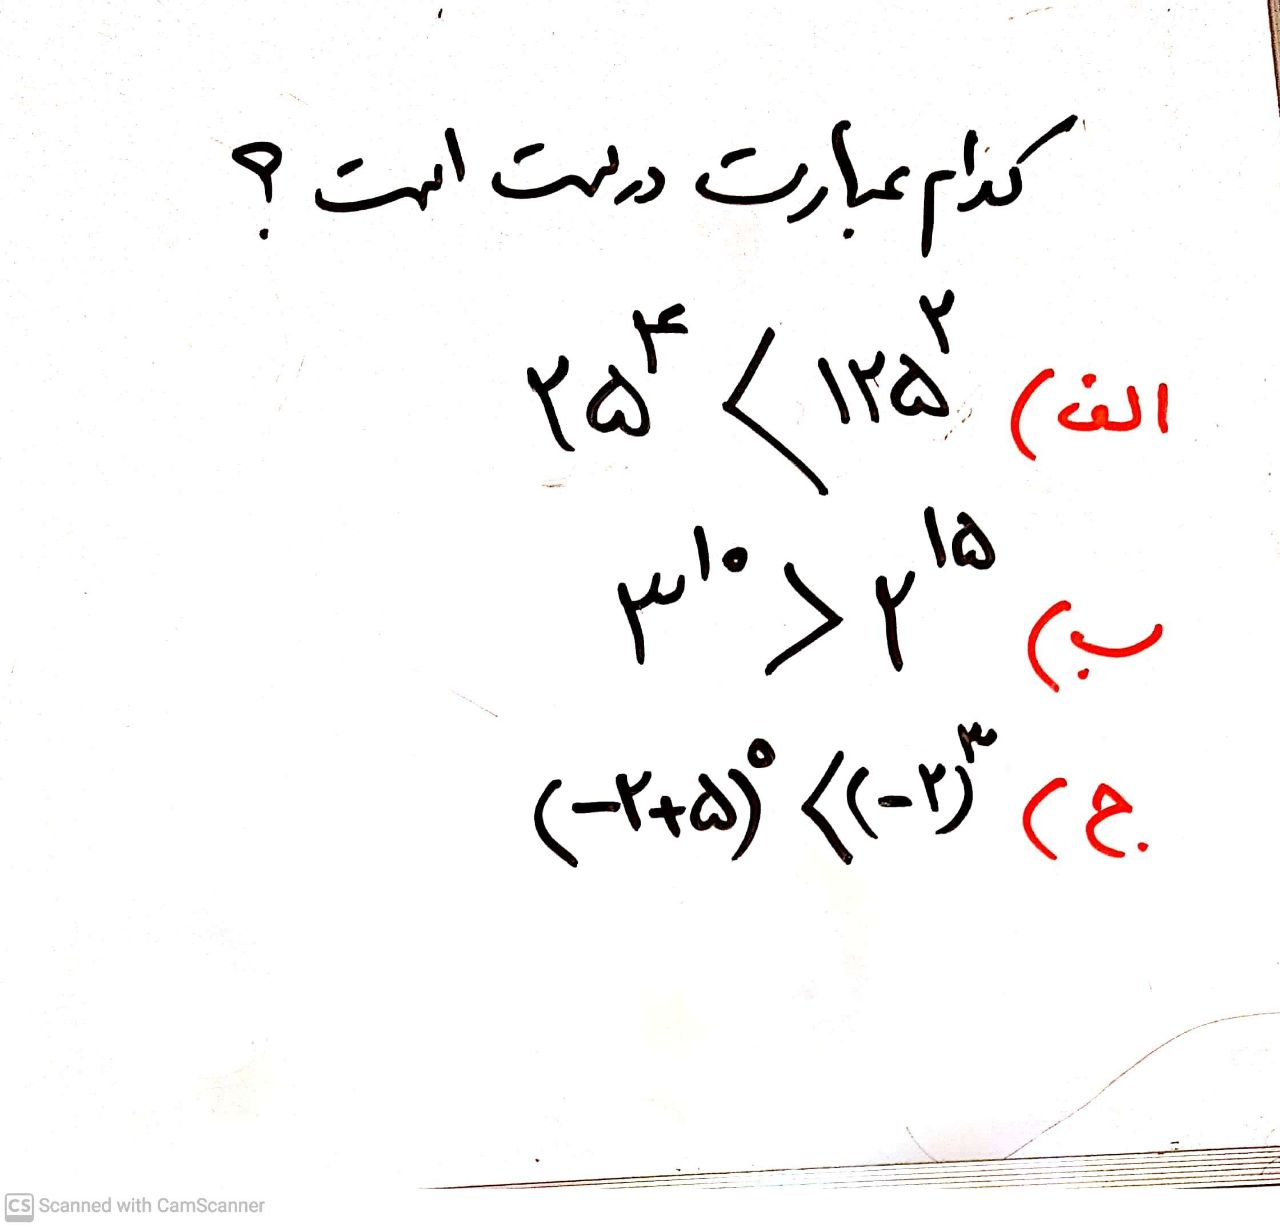 کدام عبارت درست است ؟
الف) ۲۵^۴ < ۱۲۵^۲
ب) ۳^۱۰ > ۲^۱۵
ج) (-۲+۵)^۰ < (-۲)^۳
CS Scanned with CamScanner